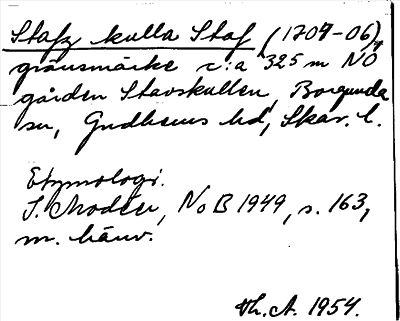 Stafz kulla Staf (1704-06),
gränsmärke c:a 325 m NO
gården Stavskullen, Borgunda
sn, Gudhems hd, Skar. l.
Etymologi.
I. Modéer, NoB 1949, s. 163,
m. hänv.
Th. A. 1954.